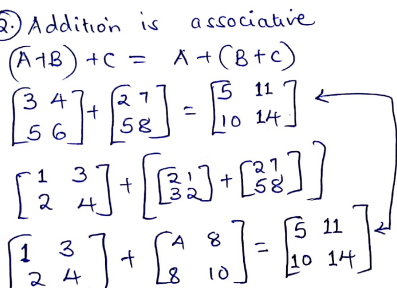 2. Addition is associative
(A+B) + C = A + (B+C)
[3 4; 5 6] + [2 7; 5 8] = [5 11; 10 14]
[1 3; 2 4] + [[2 1; 3 2] + [2 7; 5 8]]
[1 3; 2 4] + [4 8; 8 10] = [5 11; 10 14]